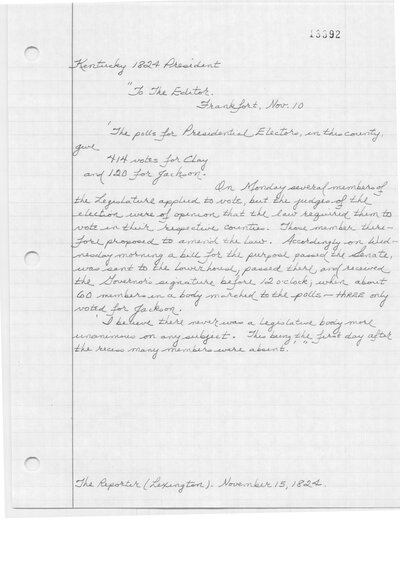 13392
Kentucky 1824 President
"To The Editor.
Frankfort, Nov. 10
'The polls for Presidential Electors, in this county,
give
414 votes for Clay
and 120 for Jackson.
On Monday several members of
the Legislature applied to vote, but the judges of the
election were of opinion that the law required them to
vote in their respective counties. Those member there-
fore proposed to amend the law. Accordingly on Wed-
nesday morning a bill for the purpose passed the Senate,
was sent to the lower house, passed there, and received
the Governor's signature before 12 o'clock, when about
60 members in a body marched to the polls — THREE only
voted for Jackson.
'I believe there never was a legislative body more
unanimous on any subject. This being the first day after
the recess many members were absent.'"
The Reporter (Lexington). November 15, 1824.